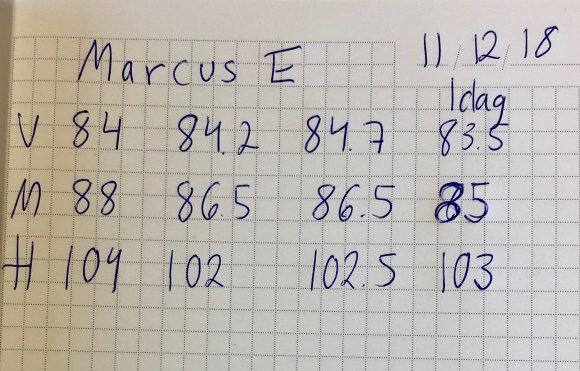 Marcus E 11/12/18
Idag
V 84 84.2 84.7 83.5
M 88 86.5 86.5 85
H 104 102 102.5 103